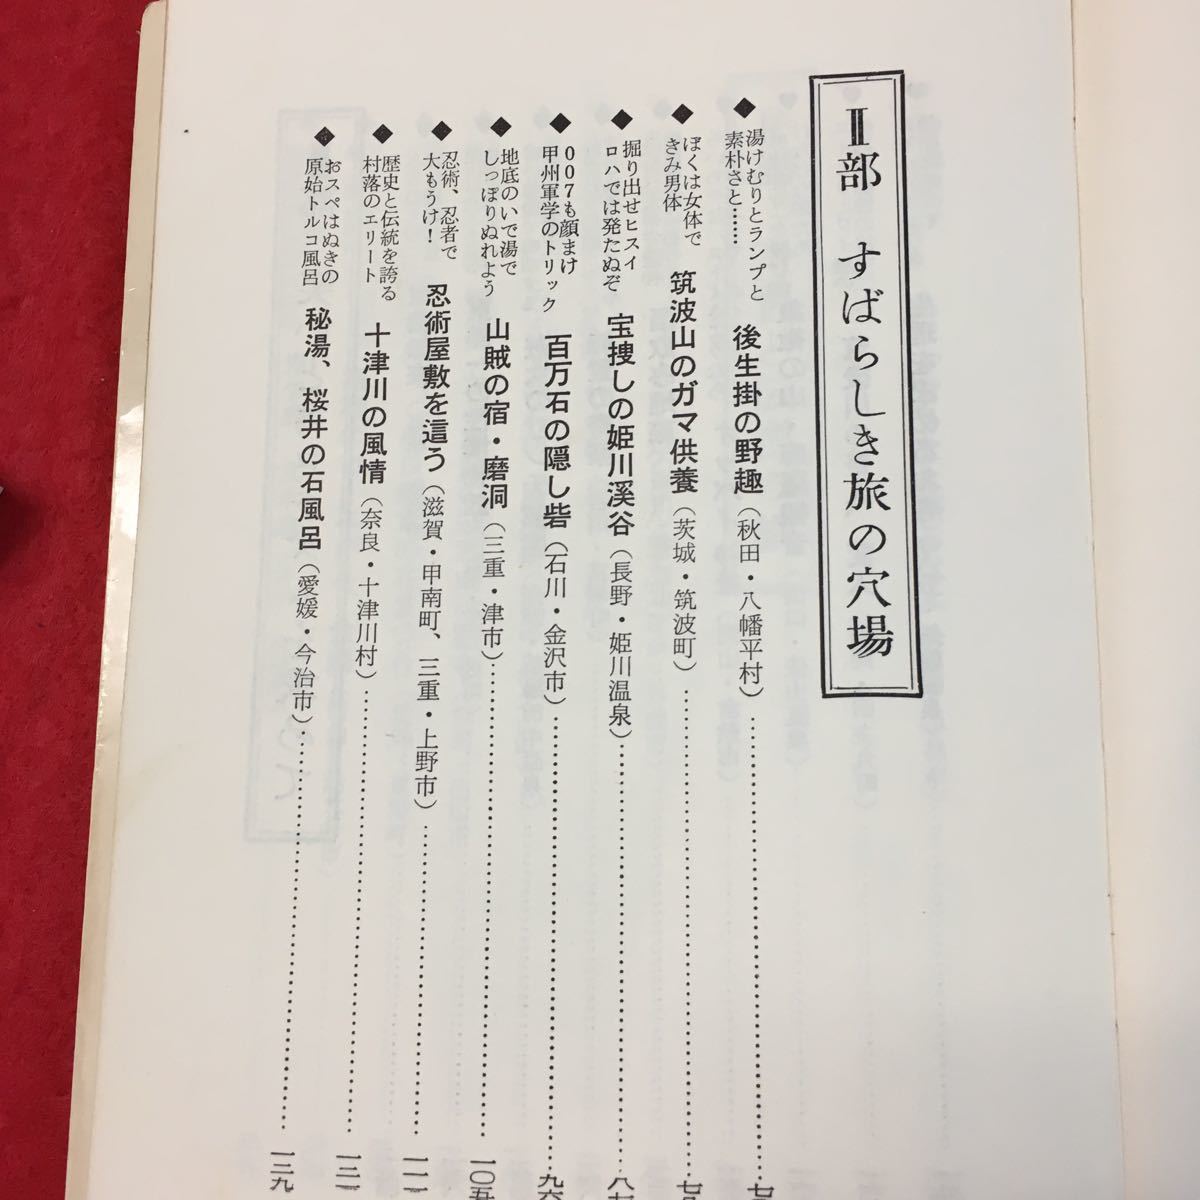 Ⅱ部 すばらしき旅の穴場
◆湯けむりとランプと
素朴さと……
後生掛の野趣（秋田・八幡平村）
◆ぼくは女体で
きみ男体
筑波山のガマ供養（茨城・筑波町）
◆掘り出せヒスイ
ロハでは発たぬぞ
宝捜しの姫川溪谷（長野・姫川温泉）
八七
◆007も顔まけ
甲州軍学のトリック
百万石の隠し砦（石川・金沢市）
九六
◆地底のいで湯で
しっぽりぬれよう
山賊の宿・磨洞（三重・津市）
一〇五
◆忍術、忍者で
大もうけ！
忍術屋敷を這う（滋賀・甲南町、三重・上野市）
◆歴史と伝統を誇る
村落のエリート
十津川の風情（奈良・十津川村）
◆おスペはぬきの
原始トルコ風呂
秘湯、桜井の石風呂（愛媛・今治市）
一二九